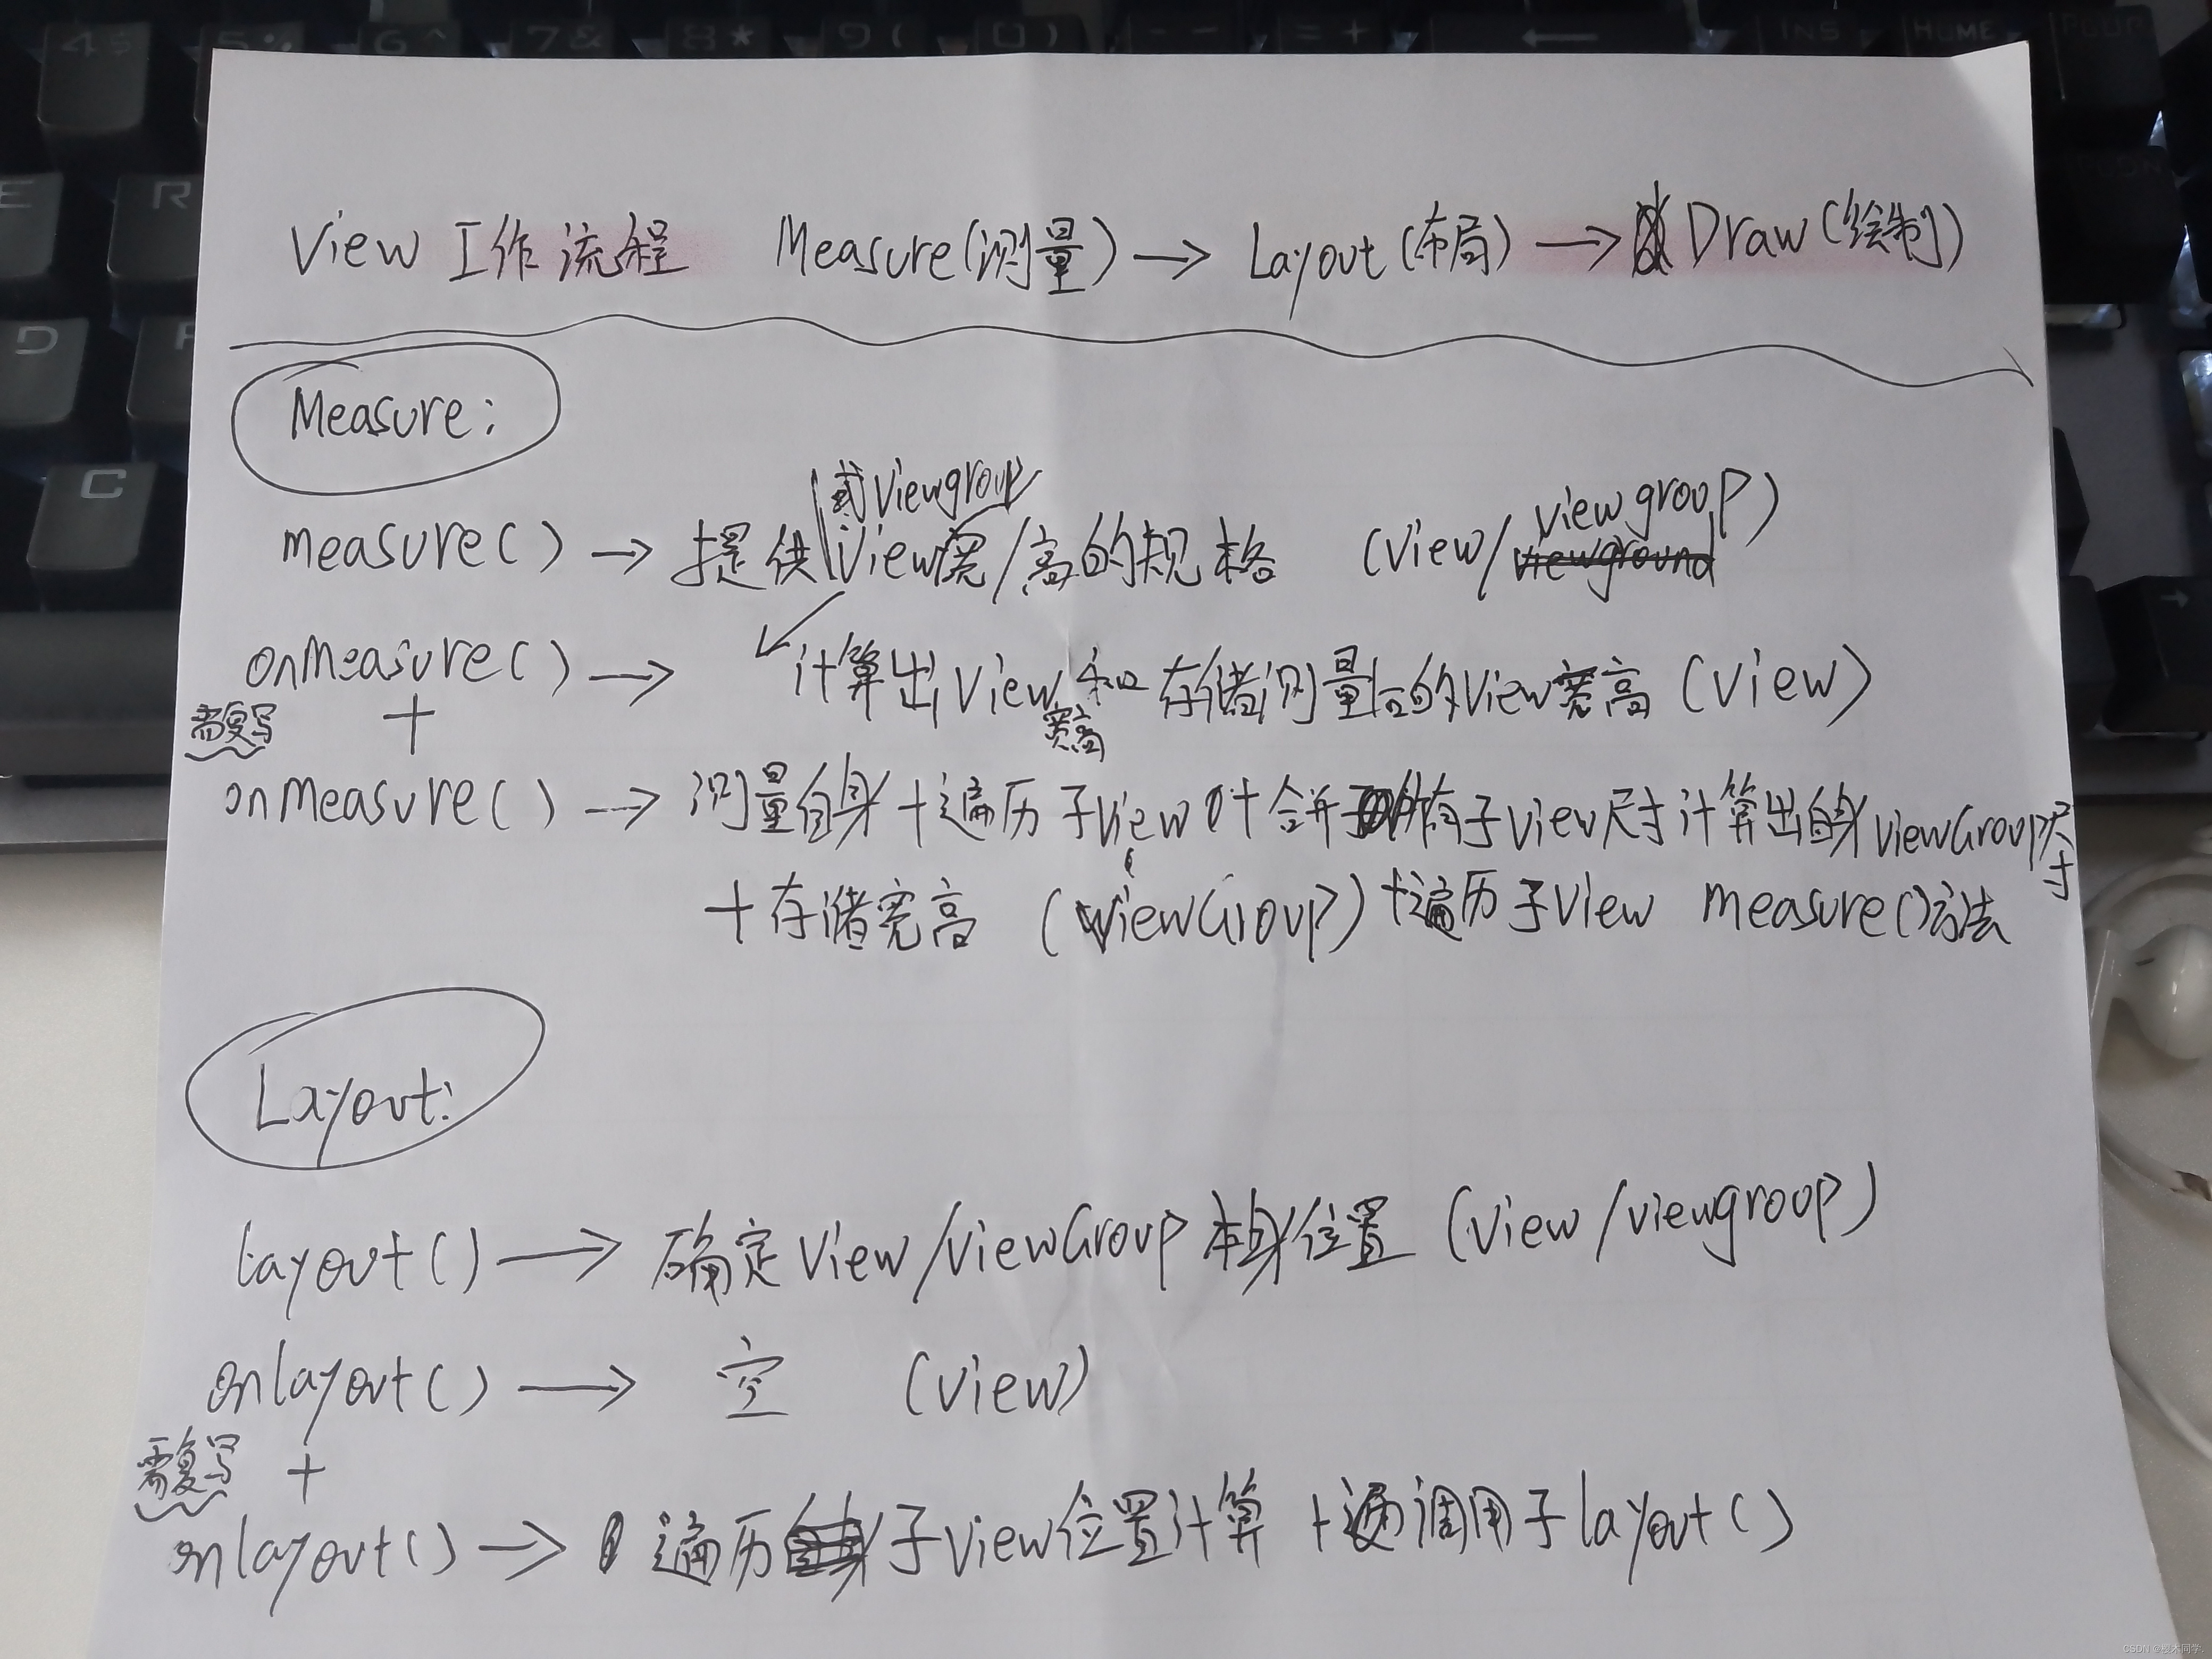 View 工作流程 Measure(测量) → Layout(布局) → Draw(绘制)
Measure:
或Viewgroup
measure() → 提供View宽/高的规格 (View/viewgroup)
onMeasure() → 计算出View宽高和存储测量后的View宽高 (View)
需复写 +
onMeasure() → 测量自身+遍历子View+合并所有子View尺寸计算出自身ViewGroup尺寸
+存储宽高 (ViewGroup) +遍历子View measure()方法
Layout:
layout() → 确定View/ViewGroup本身位置 (View/viewgroup)
onlayout() → 空 (View)
需复写 +
onlayout() → 遍历子View位置计算 + 调用子layout()
4$ 5% 6^ 7& 8* 9( 0) - - = + ← INS HOME
E R
D F
C
→
CSDN @樱木同学.